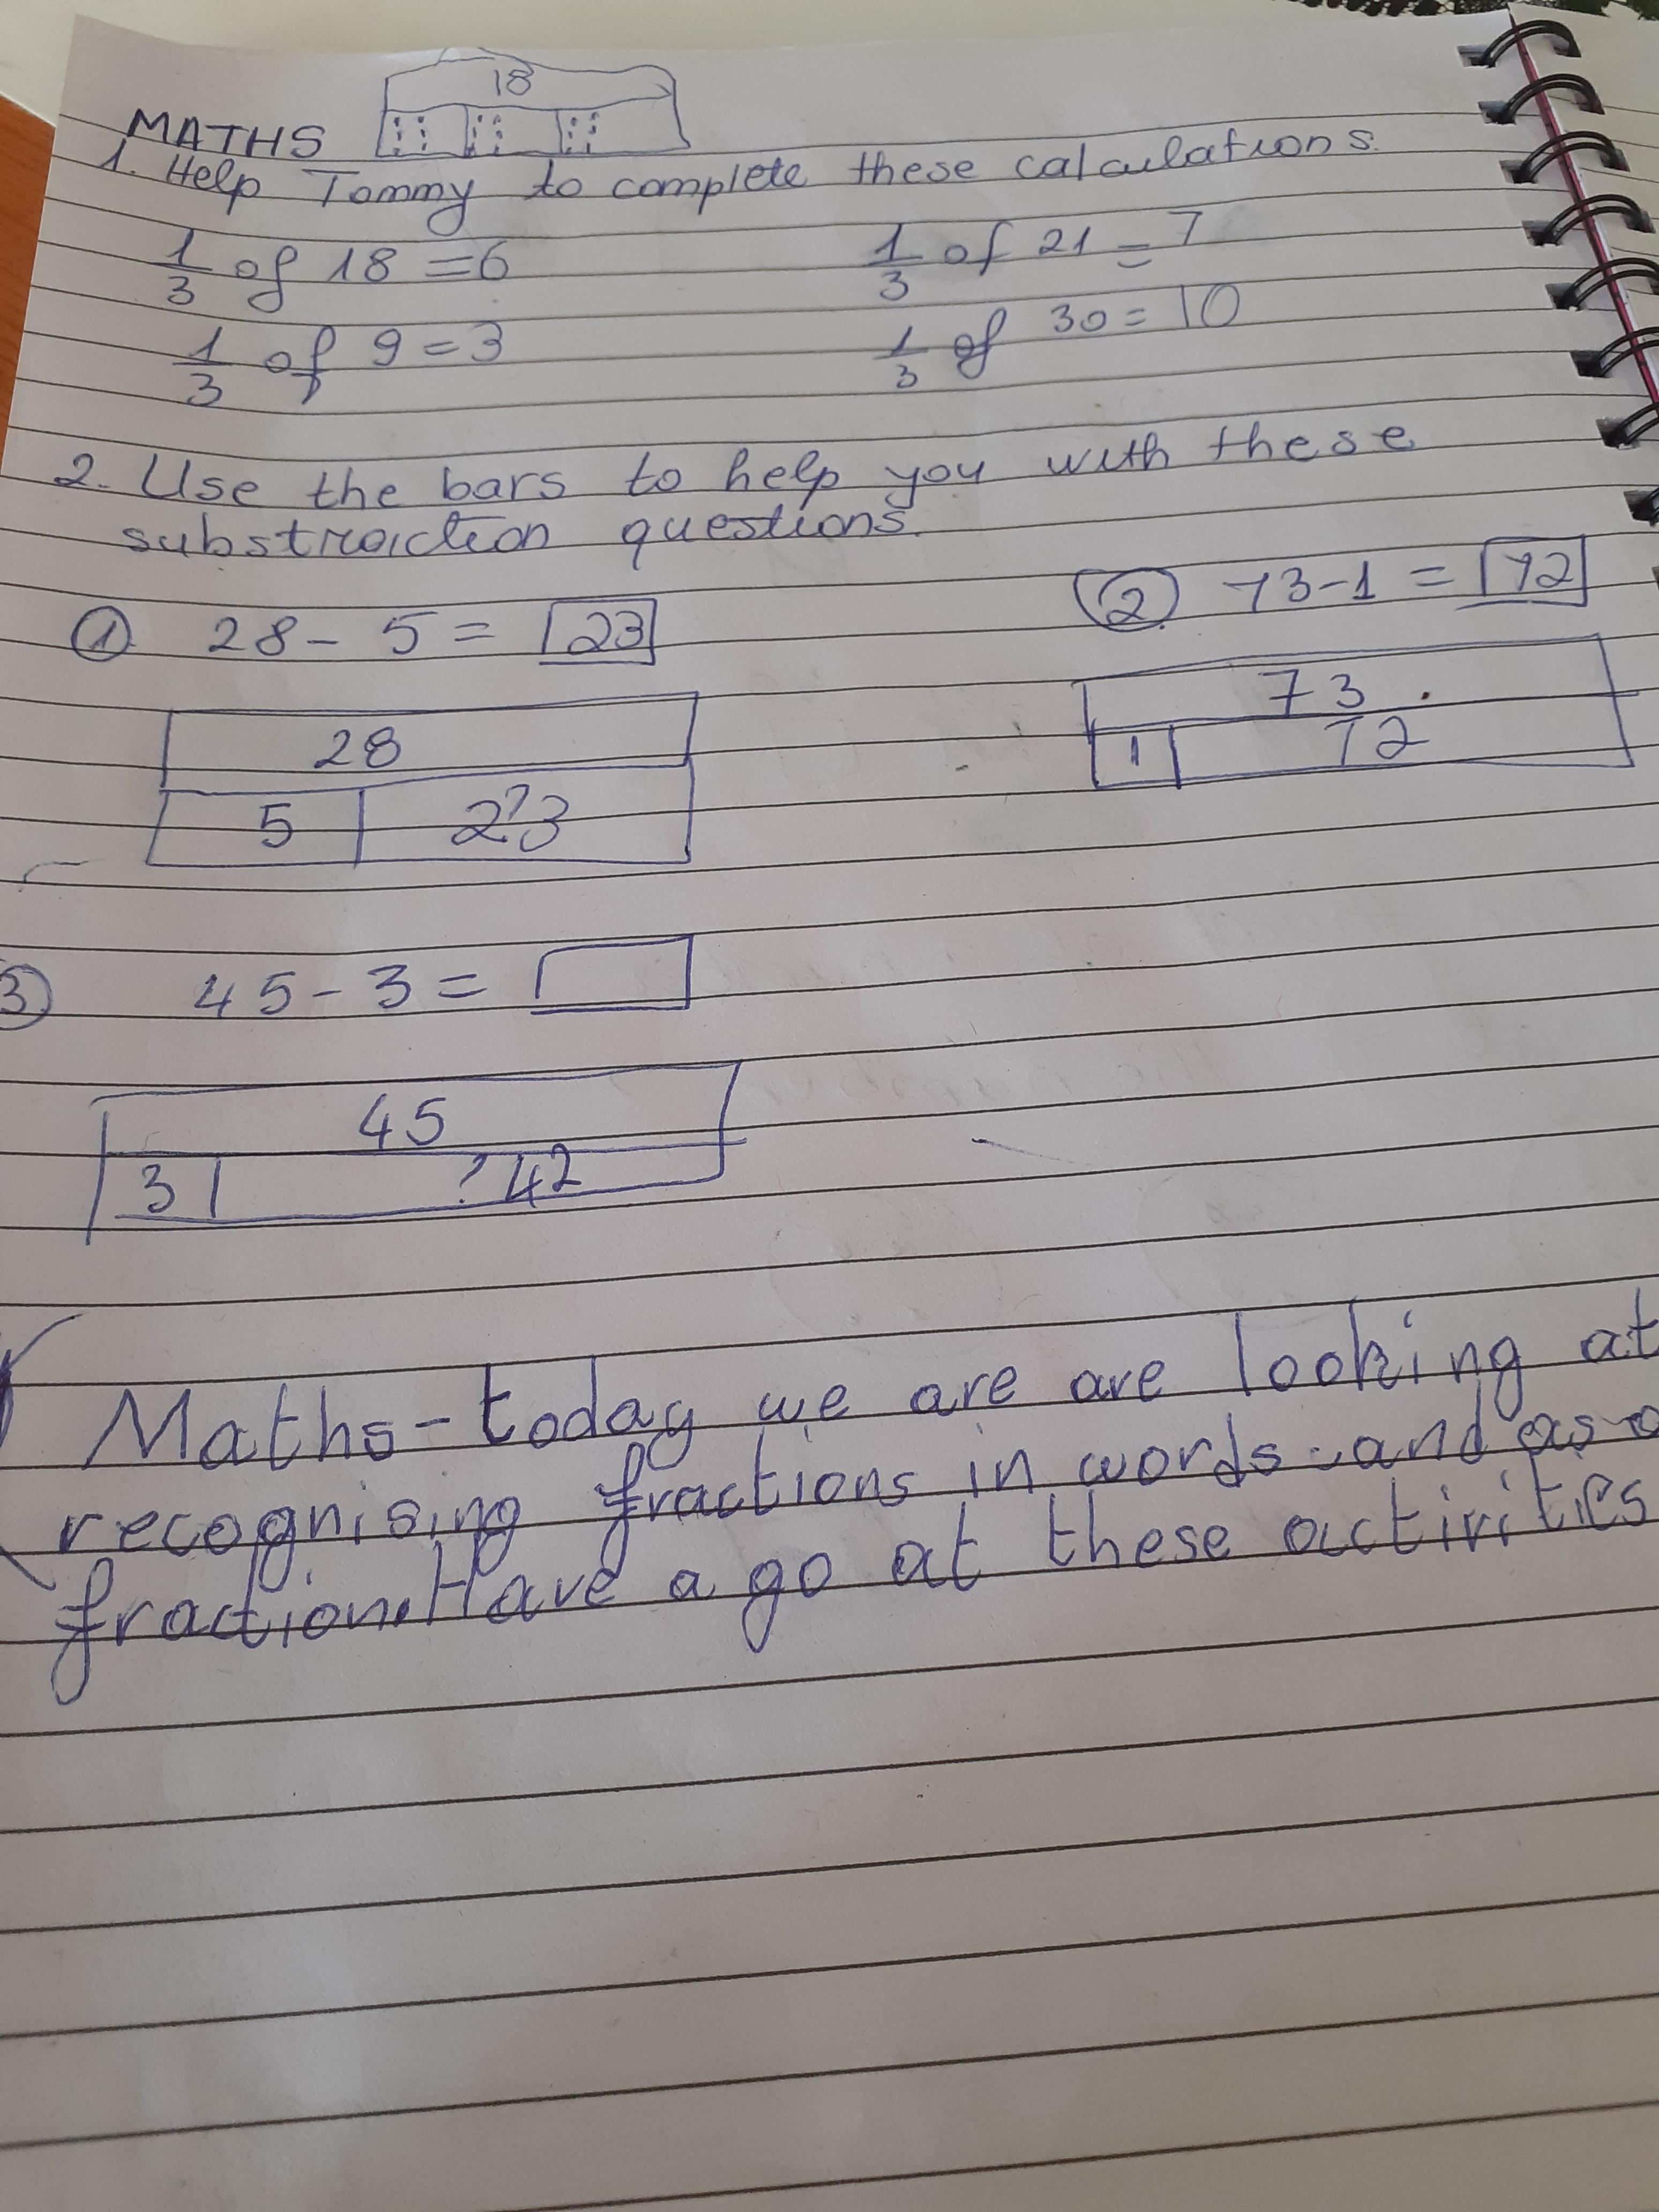 18
MATHS
1. Help Tommy to complete these calculations.
1/3 of 18 = 6
1/3 of 21 = 7
1/3 of 9 = 3
1/3 of 30 = 10
2. Use the bars to help you with these
substraction questions.
① 28 - 5 = 23
② 73 - 1 = 72
28
5 2?3
73
1 72
③ 45 - 3 =
45
3 ? 42
Maths - today we are are looking at
recognising fractions in words and as a
fraction. Have a go at these activities